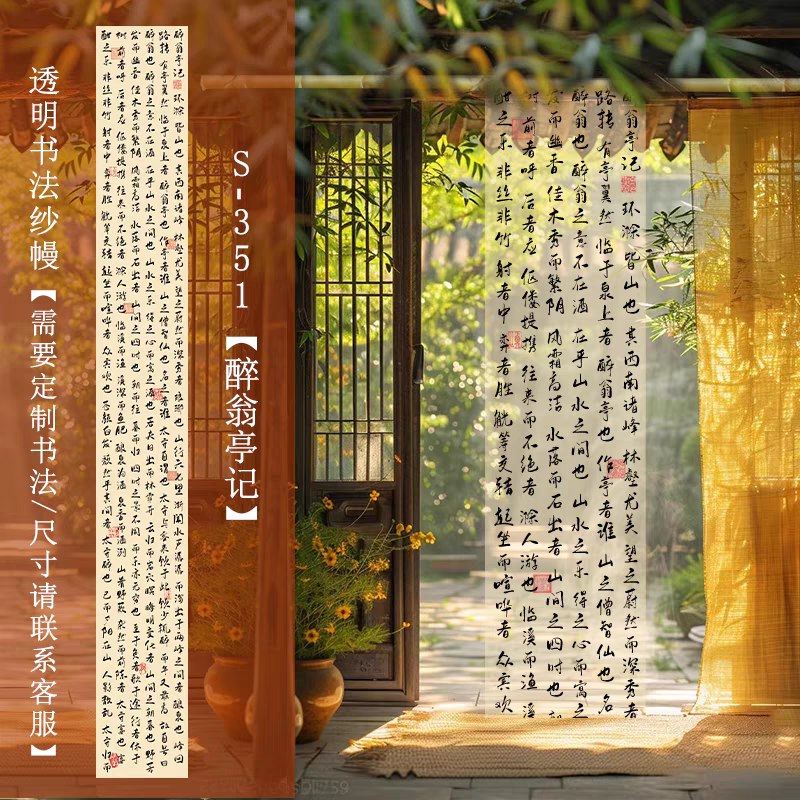 透明书法纱幔【需要定制书法/尺寸请联系客服】
醉翁亭记 环滁皆山也 其西南诸峰 林壑尤美 望之蔚然而深秀者 琅琊也 山行六七里 渐闻水声潺潺 而泻出于两峰之间者 酿泉也 峰回
路转 有亭翼然 临于泉上者 醉翁亭也 作亭者谁 山之僧智仙也 名之者谁 太守自谓也 太守与客来饮于此 饮少辄醉 而年又最高 故自号曰
醉翁也 醉翁之意不在酒 在乎山水之间也 山水之乐 得之心而寓之酒也 若夫日出而林霏开 云归而岩穴暝 晦明变化者 山间之朝暮也 野芳
发而幽香 佳木秀而繁阴 风霜高洁 水落而石出者 山间之四时也 朝而往 暮而归 四时之景不同 而乐亦无穷也 至于负者歌于途 行者休于
树 前者呼 后者应 伛偻提携 往来而不绝者 滁人游也 临溪而渔 溪深而鱼肥 酿泉为酒 泉香而酒洌 山肴野蔌 杂然而前陈者 太守宴也 宴
酣之乐 非丝非竹 射者中 弈者胜 觥筹交错 起坐而喧哗者 众宾欢也 苍颜白发 颓然乎其间者 太守醉也 已而夕阳在山 人影散乱 太守归而
S-351【醉翁亭记】
翁亭记 环滁皆山也 其西南诸峰 林壑尤美 望之蔚然而深秀者
路转 有亭翼然 临于泉上者 醉翁亭也 作亭者谁 山之僧智仙也 名
醉翁也 醉翁之意不在酒 在乎山水之间也 山水之乐 得之心而寓之
发而幽香 佳木秀而繁阴 风霜高洁 水落而石出者 山间之四时也
树 前者呼 后者应 伛偻提携 往来而不绝者 滁人游也 临溪而渔 溪
酣之乐 非丝非竹 射者中 弈者胜 觥筹交错 起坐而喧哗者 众宾欢